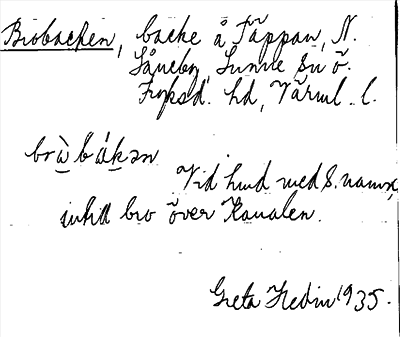 Brobacken, backe å Täppan, N.
Såneby, Sunne sn ö.
Fryksd. hd, Värml. l.
bròbákən
Vid hmd med s. namn,
intill bro över Kanalen.
Greta Hedin 1935.